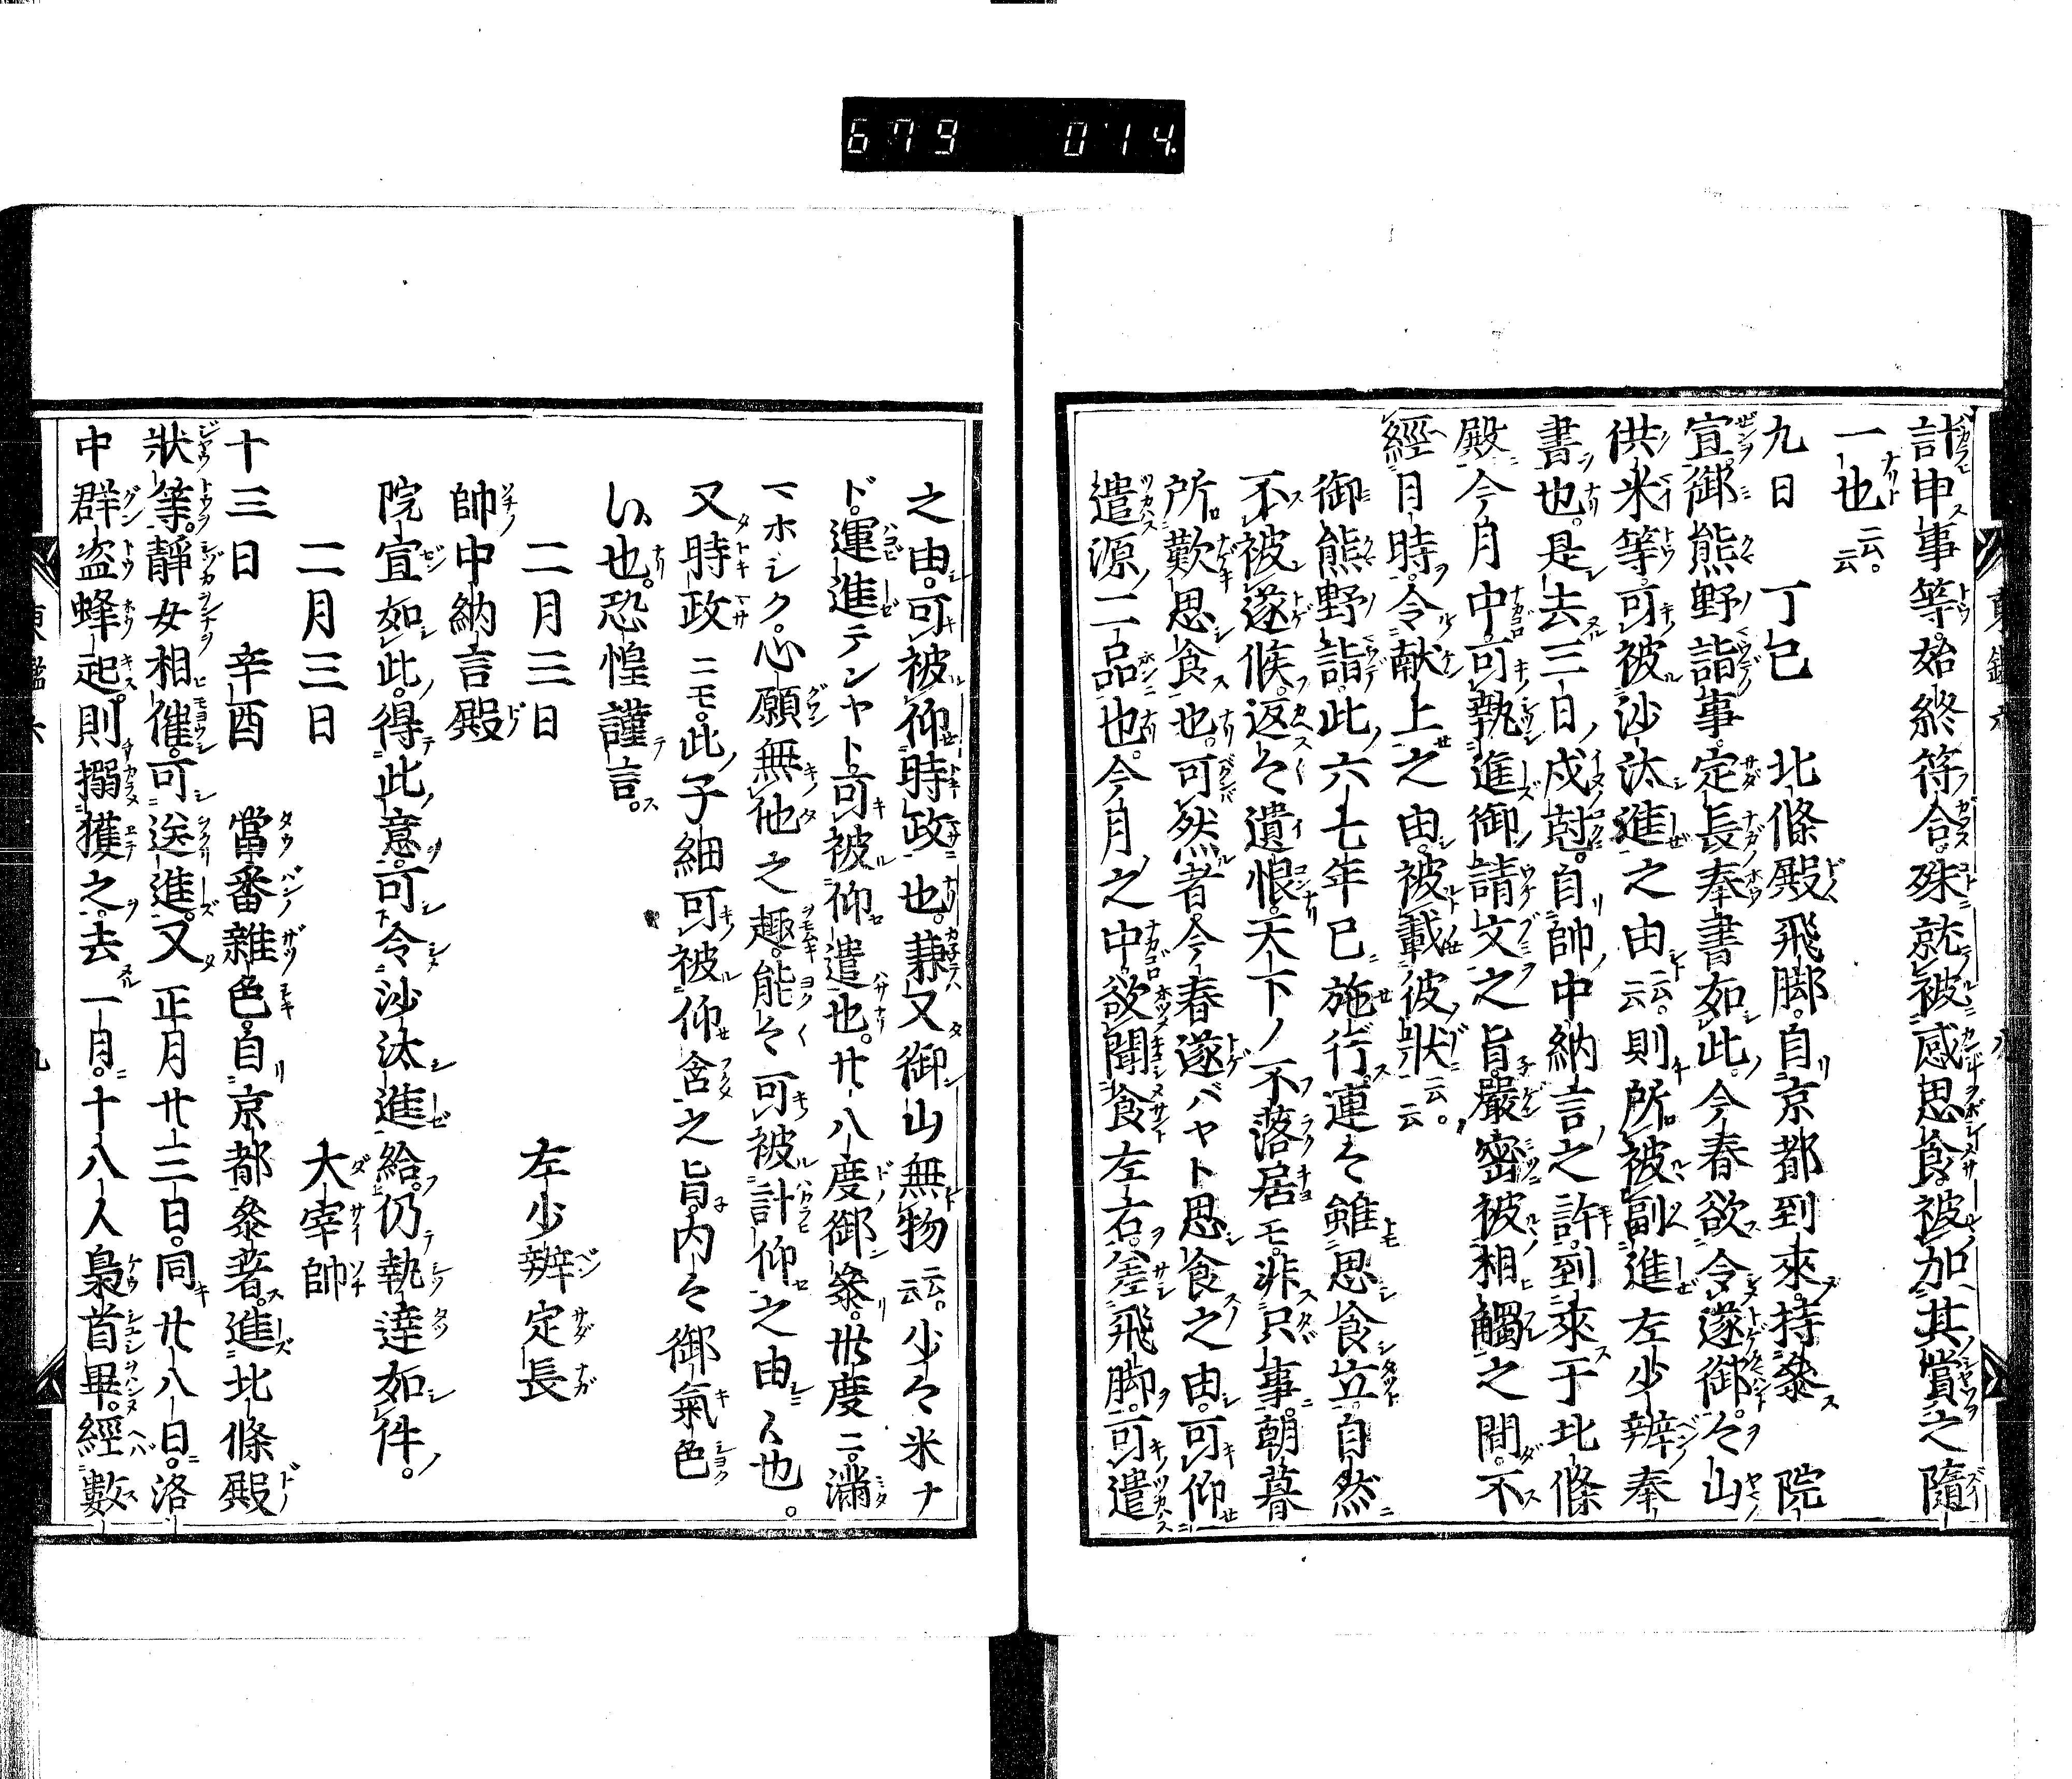 679 014
計申事等始終符合殊就被感思食被加其賞之隨
一也云云
九日 丁巳 北條殿飛脚自京都到來持參 院
宣御熊野詣事定長奉書如此今春欲令遂御々山
供米等可被沙汰進之由云云則所被副進左少辨奉
書也是去三日戌尅自帥中納言之許到來于北條
殿今月中可執進御請文之旨嚴密被相觸之間不
經月時令献上之由被載彼狀云云
御熊野詣此六七年已施行連々雖思食立自然
不被遂候返々遺恨天下ノ不落居モ非只事朝暮
所歎思食也可然者今春遂バヤト思食之由可仰
遣源二品也今月之中欲聞食左右差飛脚可遣
之由可被仰時政也兼又御山無物云云少々米ナ
ド運進テンヤト可被仰遣也廿八度御參卅度ニ滿
マホシク心願無他之趣能々可被計仰之由候也
又時政ニモ此子細可被仰含之旨内々御氣色
候也恐惶謹言
二月三日 左少辨定長
帥中納言殿
院宣如此得此意可令沙汰進給仍執達如件
二月三日 大宰帥
十三日 辛酉 當番雜色自京都參著進北條殿
狀等靜女相催可送進又正月廿三日同廿八日洛
中群盗蜂起則搦獲之去一月十八人梟首畢經數